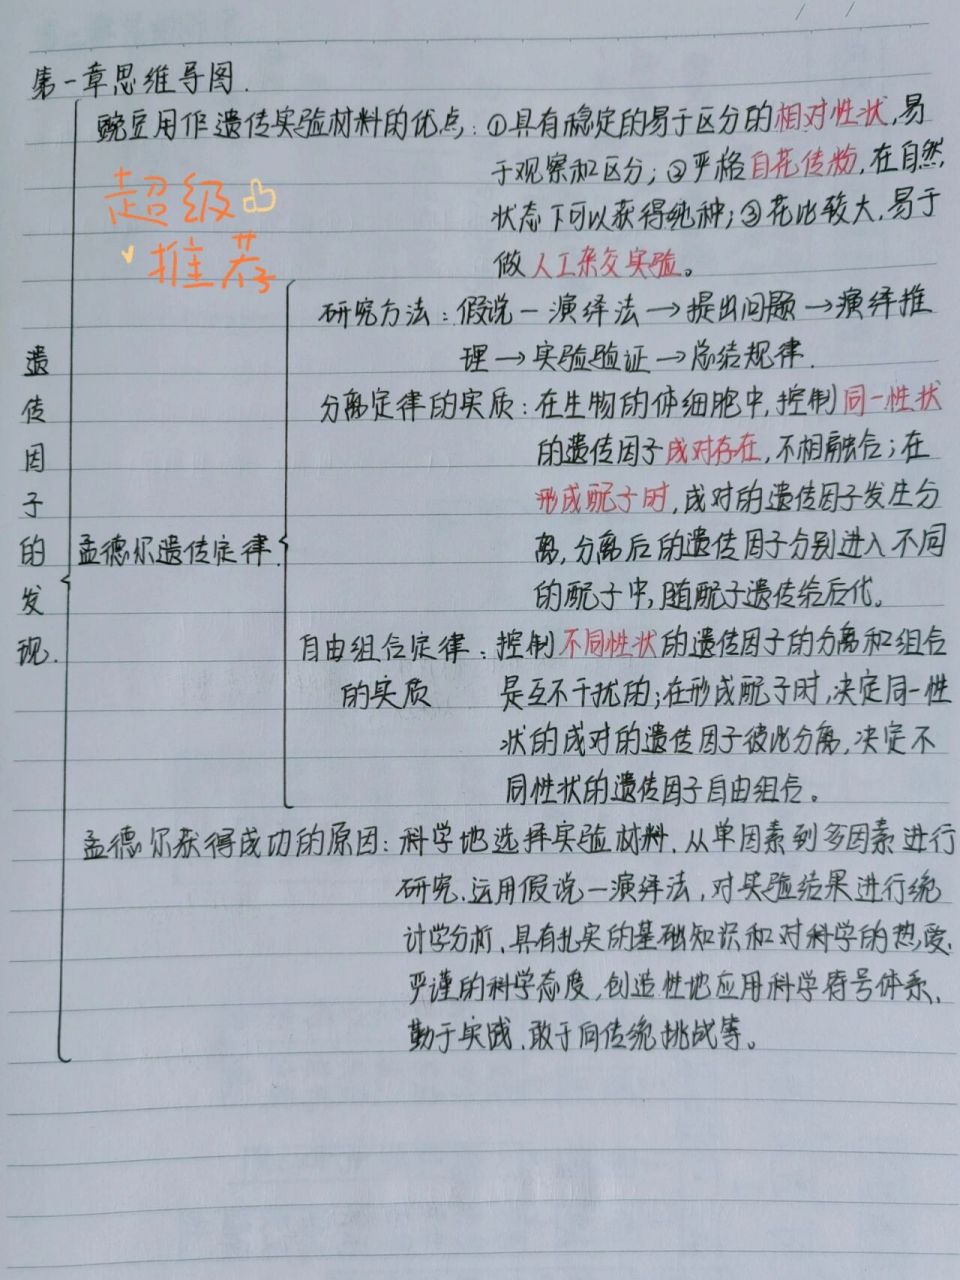 第一章思维导图.
豌豆用作遗传实验材料的优点：①具有稳定的易于区分的相对性状,易
于观察和区分；②严格自花传粉,在自然
状态下可以获得纯种；③花比较大,易于
做人工杂交实验。
超级
推荐
遗传因子的发现.
孟德尔遗传定律.
研究方法：假说一演绎法→提出问题→演绎推
理→实验验证→总结规律.
分离定律的实质：在生物的体细胞中,控制同一性状
的遗传因子成对存在,不相融合；在
形成配子时,成对的遗传因子发生分
离,分离后的遗传因子分别进入不同
的配子中,随配子遗传给后代。
自由组合定律：控制不同性状的遗传因子的分离和组合
的实质 是互不干扰的；在形成配子时,决定同一性
状的成对的遗传因子彼此分离,决定不
同性状的遗传因子自由组合。
孟德尔获得成功的原因：科学地选择实验材料、从单因素到多因素进行
研究、运用假说一演绎法，对实验结果进行统
计学分析、具有扎实的基础知识和对科学的热爱、
严谨的科学态度,创造性地应用科学符号体系、
勤于实践、敢于向传统挑战等。